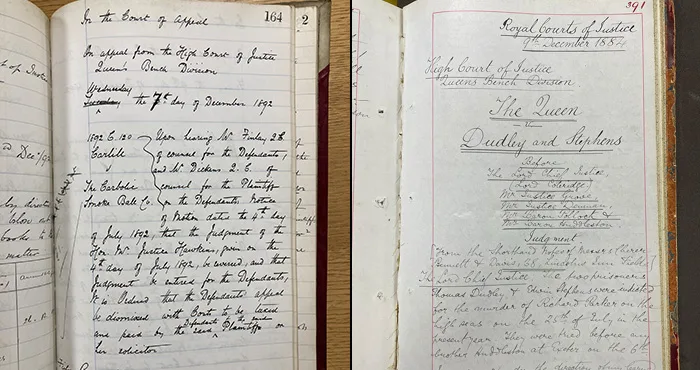 164
In the Court of Appeal
On appeal from the High Court of Justice
Queen's Bench Division
Wednesday
the 7th day of December 1892
1892 C. 120
Carlill
v
The Carbolic
Smoke Ball Co.
Upon hearing Mr Finlay Q.C.
of counsel for the Defendants,
and Mr Dickens Q. C. of
counsel for the Plaintiff
on the Defendants, Notice
of Motion dated the 4th day
of July 1892, that the Judgment of the
Hon. Mr Justice Hawkins, given on the
4th day of July 1892, be reversed, and that
Judgment be entered for the Defendants,
It is Ordered that the Defendants appeal
be dismissed with Costs to be taxed
and paid by the said Defendants to the Plaintiff or
her solicitor
2
391
Royal Courts of Justice
9th December 1884
High Court of Justice
Queens Bench Division.
The Queen
v
Dudley and Stephens
Before
The Lord Chief Justice,
(Lord Coleridge)
Mr Justice Grove
Mr Justice Denman,
Mr Baron Pollock &
Mr Baron Huddleston
Judgment
From the Shorthand Notes of Messrs
Bennett & Davis 58, Lincolns Inn Fields
The Lord Chief Justice The two prisoners
Thomas Dudley & Edwin Stephens were indicted
for the murder of Richard Parker on the
high seas on the 25th of July in the
present year. They were tried before my
brother Huddleston at Exeter on the 6th